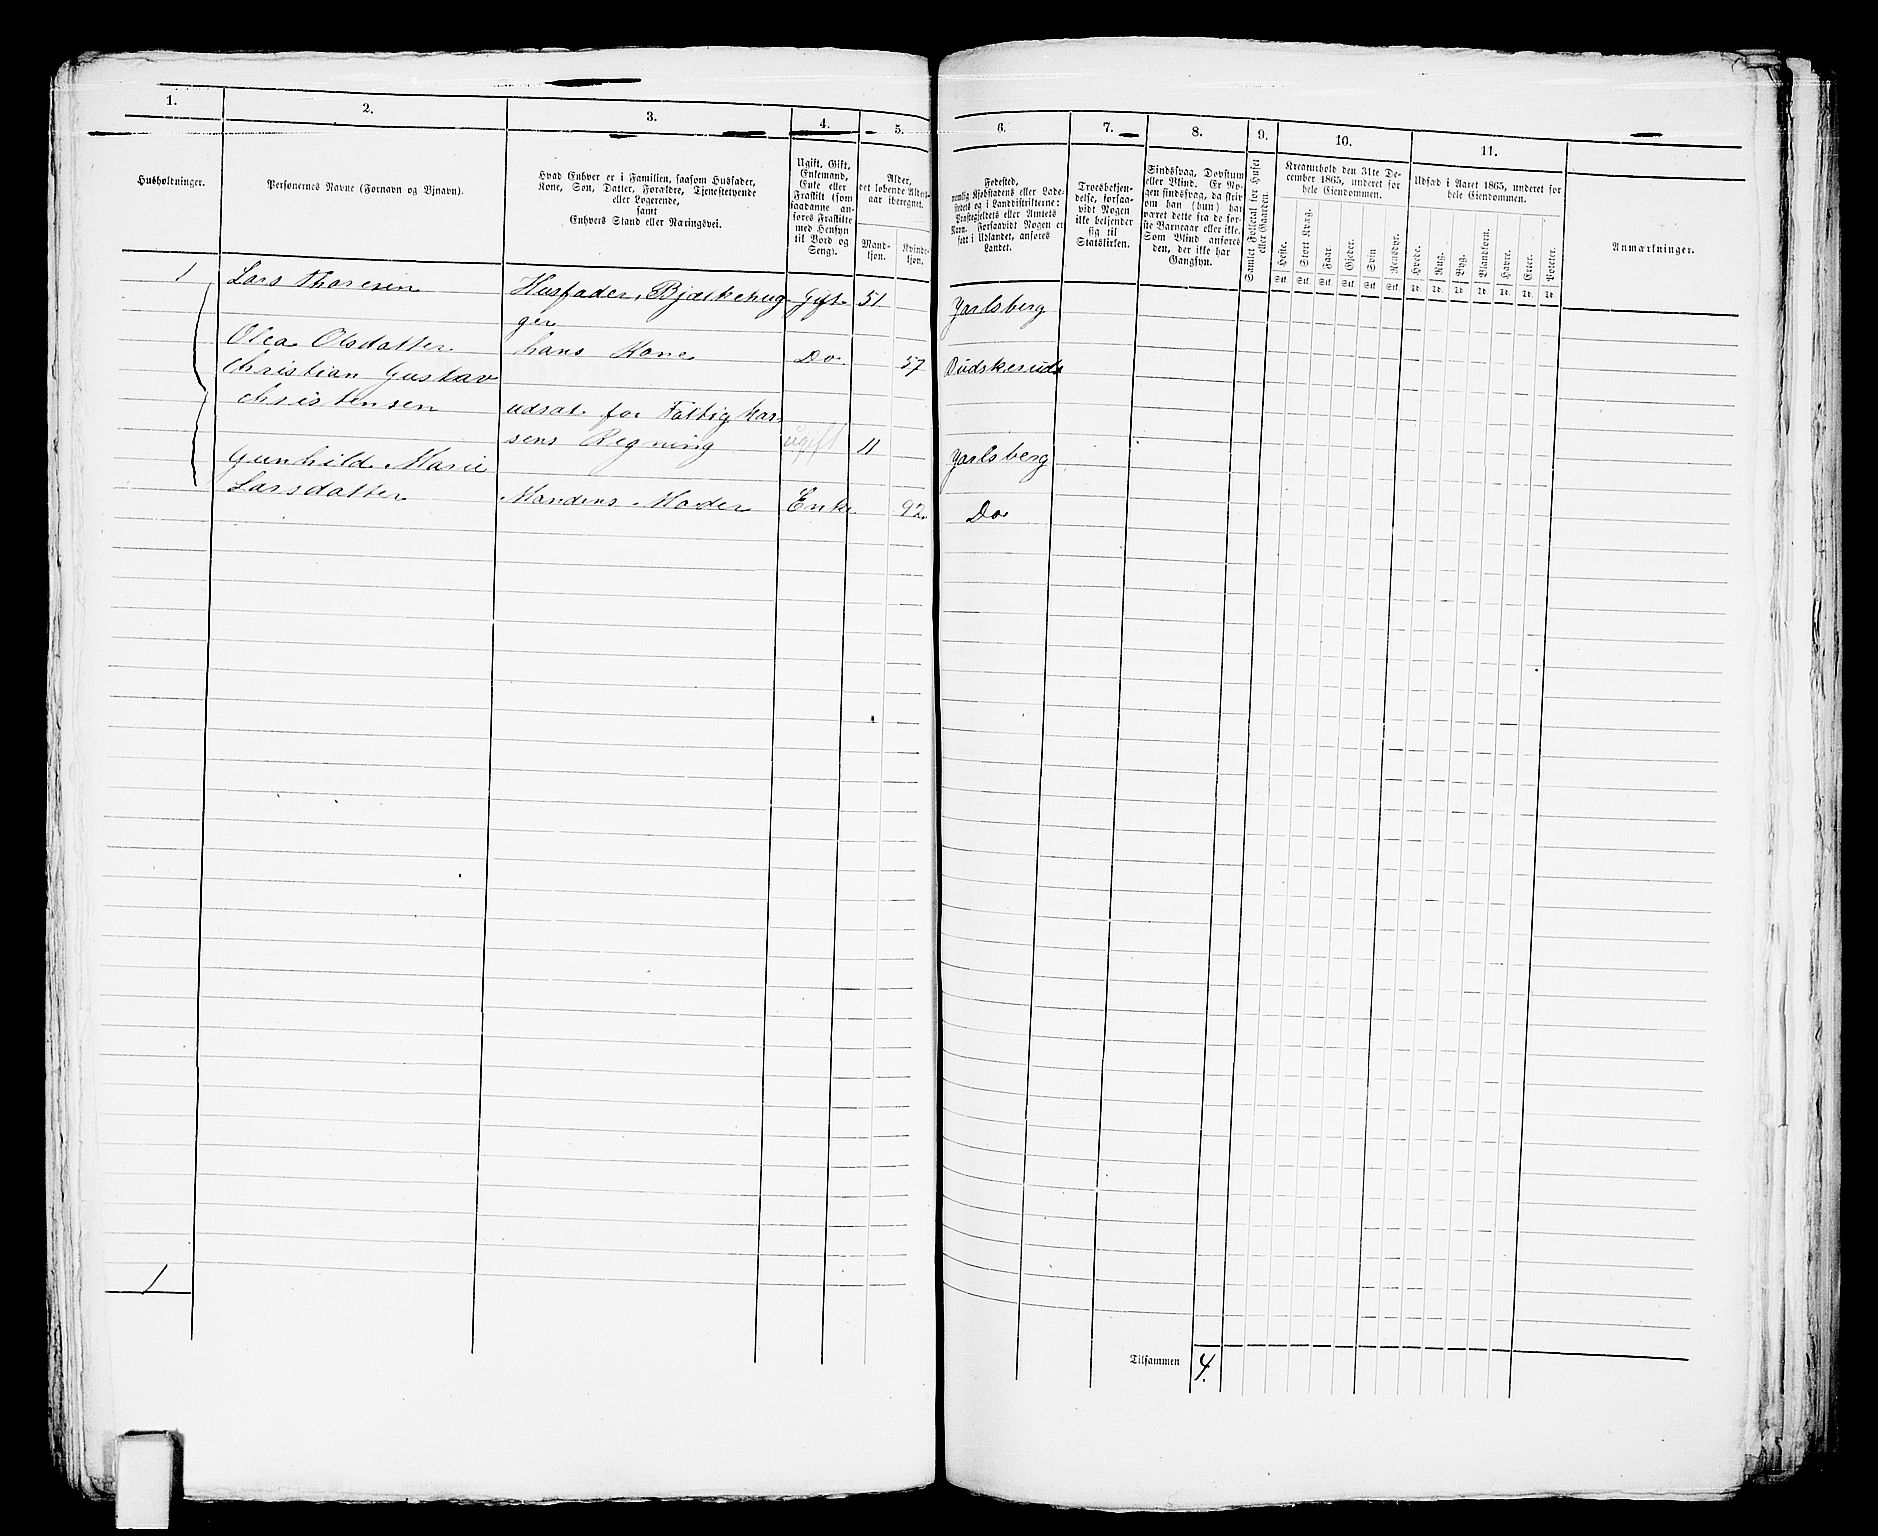 1. 2. 3. 4. 5. 6. 7. 8. 9. 10. 11.
Husholdninger.
Personernes Navne (Fornavn og Binavn).
Hvad Enhver er i Familien, saasom Husfader,
Kone, Søn, Datter, Forældre, Tjenestetyende
eller Logerende,
samt
Enhvers Stand eller Næringsvei.
Ugift, Gift,
Enkemand,
Enke eller
Fraskilt (som
saadanne an-
føres Fraskilte
med Hensyn
til Bord og
Seng).
Alder,
det løbende Alders-
aar iberegnet.
Mand-
kjøn.
Kvinde-
kjøn.
Fødested,
nemlig Kjøbstadens eller Lade-
stedets og i Landdistrikterne:
Præstegjeldets eller Amtets
Navn. Forsaavidt Nogen er
født i Udlandet, anføres
Landet.
Troesbekjen-
delse, forsaa-
vidt Nogen
ikke bekjender
sig til
Statskirken.
Sindssvag, Døvstum
eller Blind. Er No-
gen sindssvag, da skriv
om han (hun) har
været dette fra de før-
ste Barneaar eller ikke.
Som Blind anføres
den, der ikke har
Gangsyn.
Samlet Folketal for Huset
eller Gaarden.
Kreaturhold den 31te De-
cember 1865, underet for
hele Eiendommen.
Heste. Stort Kvæg. Faar. Gjeder. Svin Rensdyr.
Stk. Stk. Stk. Stk. Stk. Stk.
Udsæd i Aaret 1865, underet for
hele Eiendommen.
Hvede. Rug. Byg. Blandkorn. Havre. Erter. Poteter.
Td. Td. Td. Td. Td. Td. Td.
Anmærkninger.
1 Lars Thoresen Husfader, Bjælkehug- Gift 51 Jarlsberg
ger
Olea Olsdatter hans Kone Do 57 Budskeruds
Christian Gustav
Christensen udsat for Fattigkas-
sens Regning ugift 11 Jarlsberg
Gunhild Marie
Larsdatter Mandens Moder Enke 92 Do
1
Tilsammen 4.